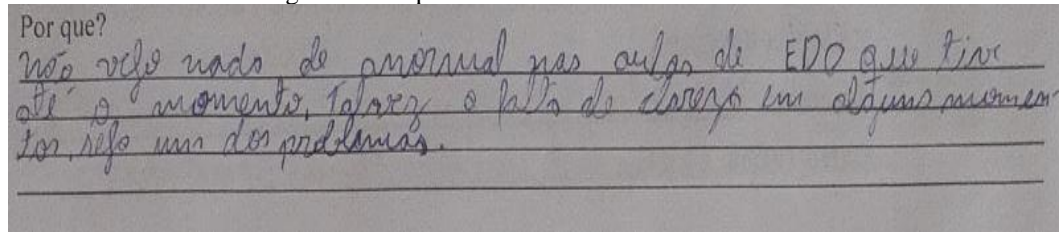 Por que?
não vejo nada de anormal nas aulas de EDO que tive
até o momento, Talvez a falta de clareza em alguns momen-
tos, seja um dos problemas.